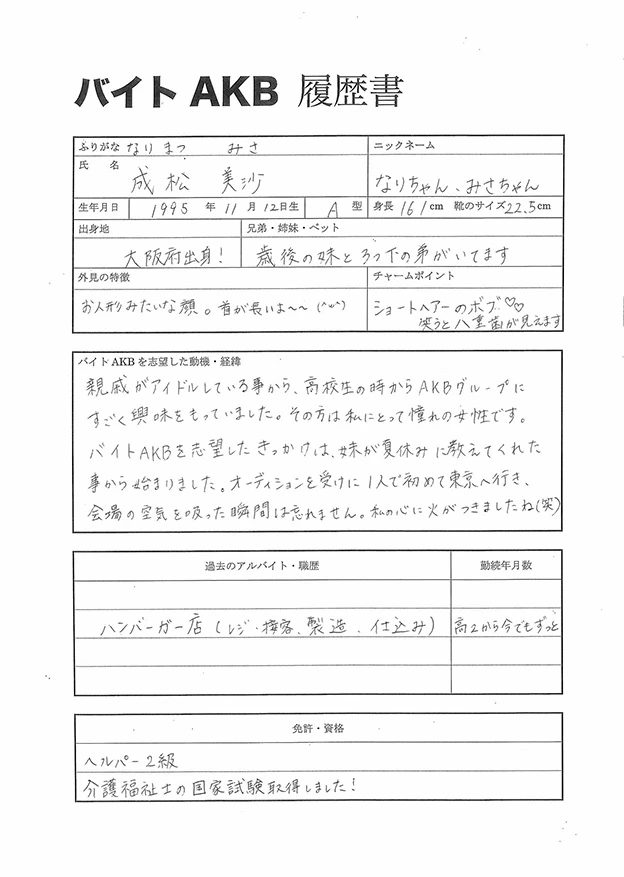 バイト AKB 履歴書
ふりがな なりまつ みさ
ニックネーム
氏 名
成松 美沙
なりちゃん、みさちゃん
生年月日 1995 年 11 月 12 日生 A 型 身長 161 cm 靴のサイズ 22.5 cm
出身地 兄弟・姉妹・ペット
大阪府出身! 歳後の妹と3つ下の弟がいてます
外見の特徴 チャームポイント
お人形みたいな顔。首が長いよ〜〜 (^ω^)
ショートヘアーのボブ♡♡
笑うと八重歯が見えます
バイトAKBを志望した動機・経緯
親戚がアイドルしている事から、高校生の時からAKBグループに
すごく興味をもっていました。その方は私にとって憧れの女性です。
バイトAKBを志望したきっかけは、妹が夏休みに教えてくれた
事から始まりました。オーディションを受けに1人で初めて東京へ行き、
会場の空気を吸った瞬間は忘れません。私の心に火がつきましたね(笑)
過去のアルバイト・職歴 勤続年月数
ハンバーガー店(レジ・接客、製造、仕込み) 高2から今でもずっと
免許・資格
ヘルパー2級
介護福祉士の国家試験取得しました!